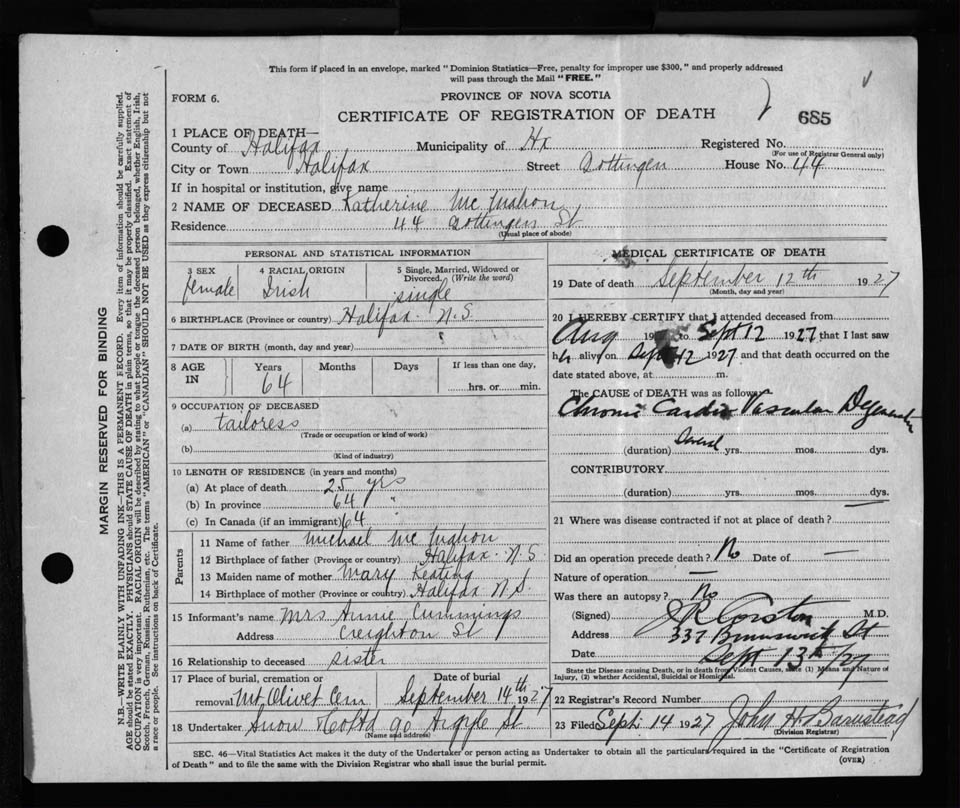 This form if placed in an envelope, marked "Dominion Statistics—Free, penalty for improper use $300," and properly addressed
will pass through the Mail "FREE."
FORM 6.
PROVINCE OF NOVA SCOTIA
CERTIFICATE OF REGISTRATION OF DEATH
685
1 PLACE OF DEATH—
County of Halifax Municipality of Hx Registered No.
(For use of Registrar General only)
City or Town Halifax Street Gottingen House No. 44
If in hospital or institution, give name
2 NAME OF DECEASED Katherine Mc Mahon
Residence 44 Gottingen St
(Usual place of abode)
PERSONAL AND STATISTICAL INFORMATION
3 SEX female
4 RACIAL ORIGIN Irish
5 Single, Married, Widowed or Divorced. (Write the word) single
6 BIRTHPLACE (Province or country) Halifax N.S.
7 DATE OF BIRTH (month, day and year)
8 AGE IN Years 64 Months Days If less than one day, hrs. or min.
9 OCCUPATION OF DECEASED
(a) tailoress
(Trade or occupation or kind of work)
(b)
(Kind of industry)
10 LENGTH OF RESIDENCE (in years and months)
(a) At place of death 25 yrs
(b) In province 64 "
(c) In Canada (if an immigrant) 64 "
Parents
11 Name of father Michael Mc Mahon
12 Birthplace of father (Province or country) Halifax N.S.
13 Maiden name of mother Mary Keating
14 Birthplace of mother (Province or country) Halifax N.S.
15 Informant's name Mrs Annie Cummings
Address Creighton St
16 Relationship to deceased sister
17 Place of burial, cremation or removal Mt Olivet Cem Date of burial September 14th 1927
18 Undertaker Snow & Co Ltd 90 Argyle St
(Name and address)
MEDICAL CERTIFICATE OF DEATH
19 Date of death September 12th 1927
(Month, day and year)
20 I HEREBY CERTIFY that I attended deceased from
Aug 19 to Sept 12 1927 that I last saw
h er alive on Sept 12 1927 and that death occurred on the
date stated above, at m.
The CAUSE of DEATH was as follows:
Chronic Cardio Vascular Degeneration
(duration) Several yrs. mos. dys.
CONTRIBUTORY
(duration) yrs. mos. dys.
21 Where was disease contracted if not at place of death?
Did an operation precede death? No Date of —
Nature of operation —
Was there an autopsy? No
(Signed) J R Corston M.D.
Address 337 Brunswick St
Date Sept 13th/27
State the Disease causing Death, or in death from Violent Causes, state (1) Means and Nature of
Injury, (2) whether Accidental, Suicidal or Homicidal.
22 Registrar's Record Number
23 Filed Sept. 14 1927 John H. Barnstead
(Division Registrar)
SEC. 46—Vital Statistics Act makes it the duty of the Undertaker or person acting as Undertaker to obtain all the particulars required in the "Certificate of Registration
of Death" and to file the same with the Division Registrar who shall issue the burial permit.
(OVER)
MARGIN RESERVED FOR BINDING
N.B.—WRITE PLAINLY WITH UNFADING INK—THIS IS A PERMANENT RECORD. Every item of information should be carefully supplied.
AGE should be stated EXACTLY. PHYSICIANS should STATE CAUSE OF DEATH in plain terms, so that it may be properly classified. Exact statement of
OCCUPATION is very important. RACIAL ORIGIN will be described by stating to what people or tongue the deceased person belonged, whether English, Irish,
Scotch, French, German, Russian, Ruthenian, etc. The terms "AMERICAN" or "CANADIAN" SHOULD NOT BE USED as they express citizenship but not
a race or people. See instructions on back of Certificate.